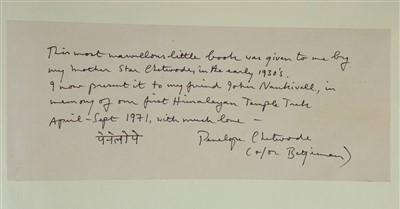 This most marvellous little book was given to me by
my mother Star Chetwode, in the early 1930's.
I now present it to my friend John Nankivell, in
memory of our first Himalayan Temple Trek
April-Sept 1971, with much love —
पेनेलोपे Penelope Chetwode
(a/or Betjeman)